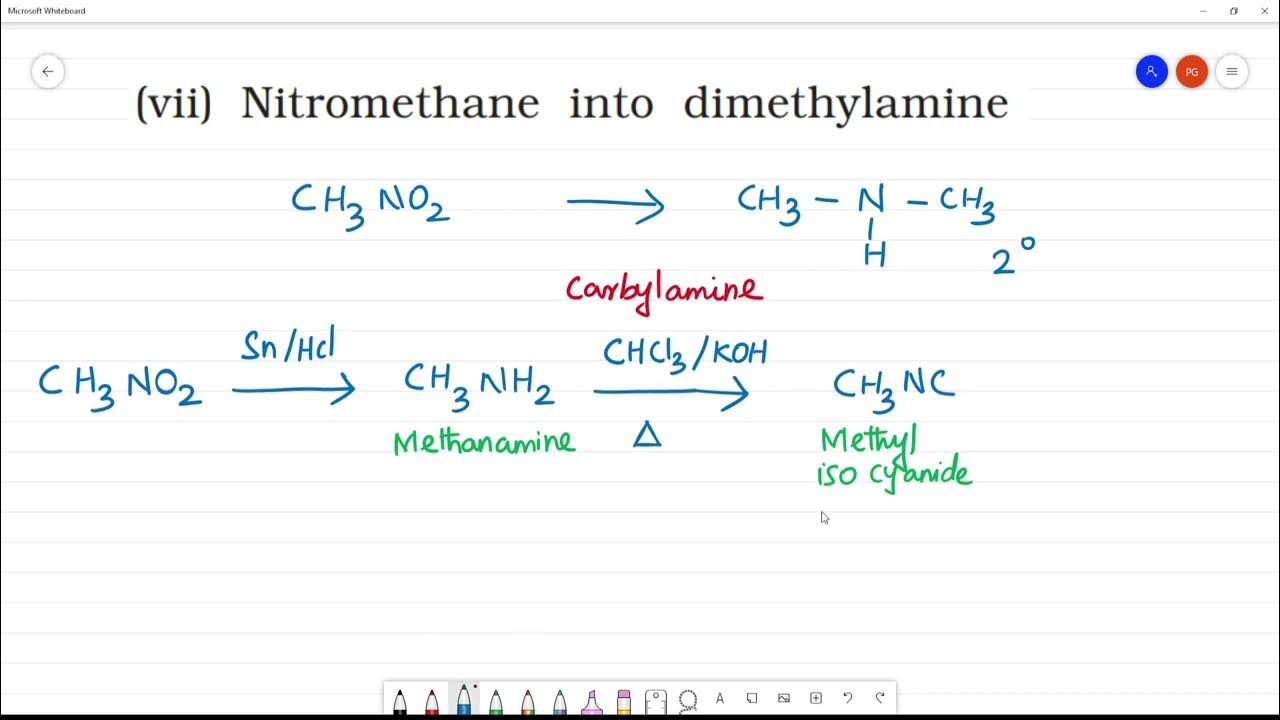 Microsoft Whiteboard
PG
(vii) Nitromethane into dimethylamine
CH3 NO2 → CH3 – N – CH3
H
2°
Carbylamine
Sn/HCl CHCl3/KOH
CH3 NO2 → CH3 NH2 → CH3 NC
Methanamine Δ Methyl
iso cyanide
A